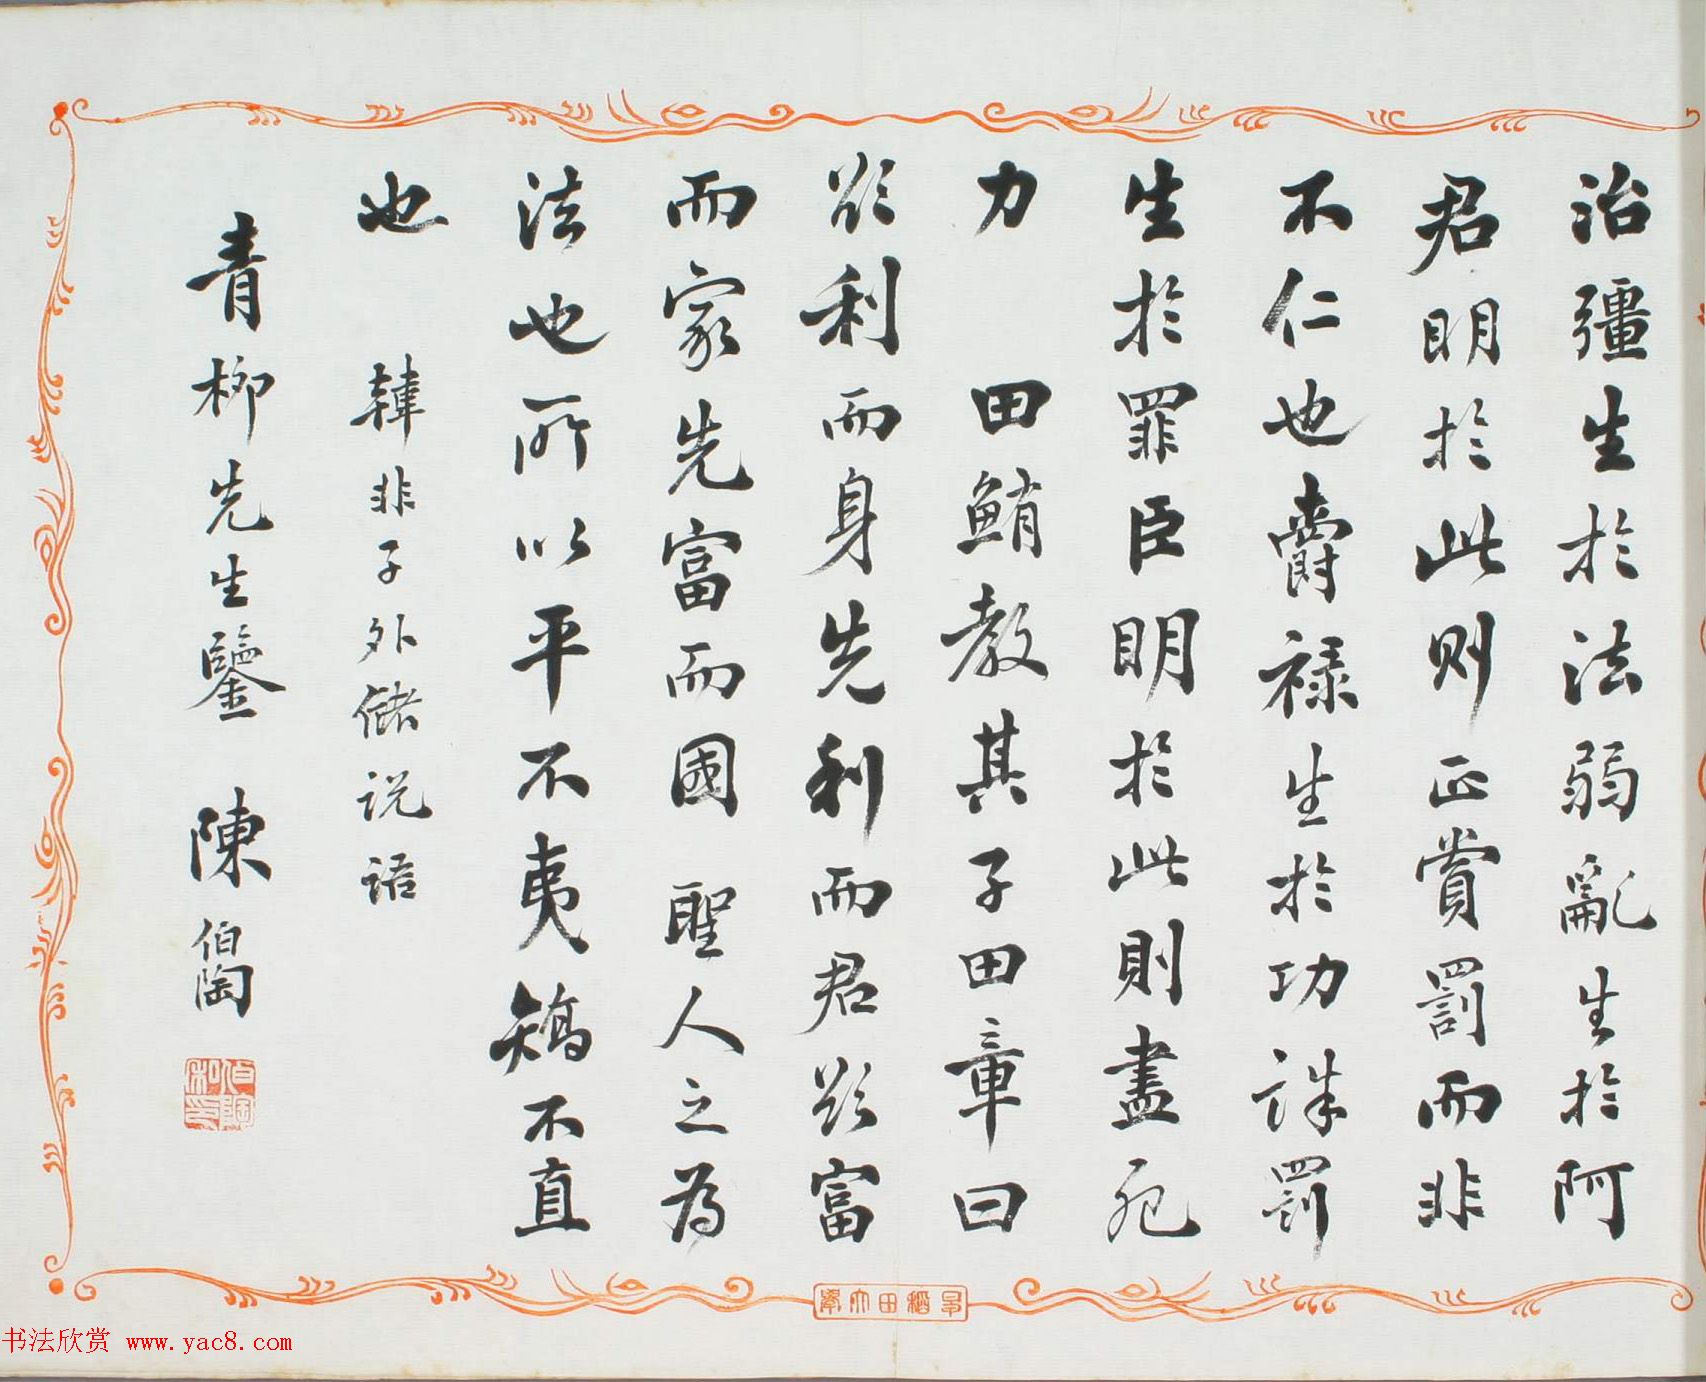 治彊生於法弱亂生於阿
君明於此則正賞罰而非
不仁也爵祿生於功誅罰
生於罪臣明於此則盡死
力 田鮪教其子田章曰
欲利而身先利而君欲富
而家先富而國聖人之為
法也所以平不夷矯不直
也 韓非子外儲說語
青柳先生鑒 陳伯陶
伯陶私印
书法欣赏 www.yac8.com